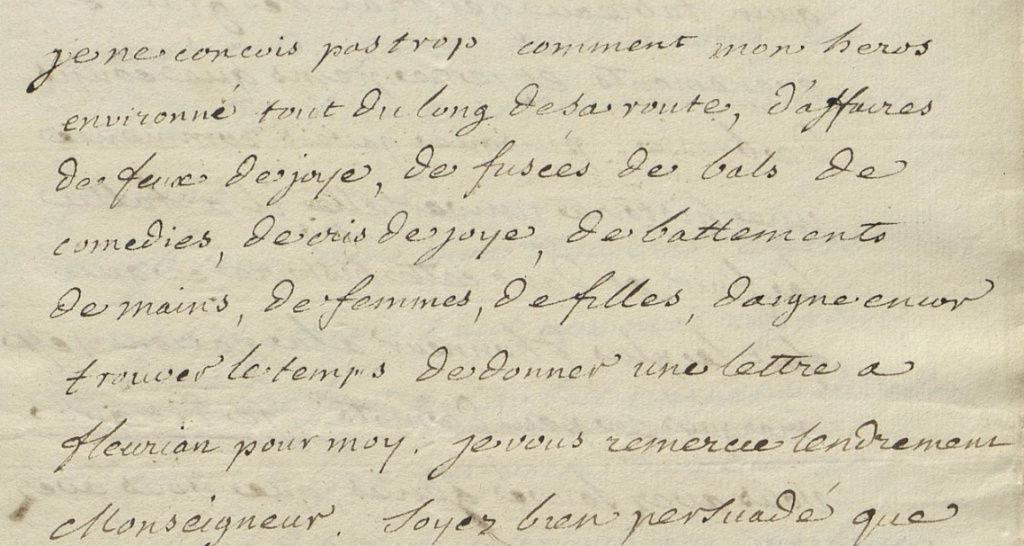 je ne concois pas trop comment mon heros
environné tout du long de sa route, d'affaires
de feux de joye, de fusées de bals de
comedies, de cris de joye, de battements
de mains, de femmes, de filles, daigne encor
trouver le temps de donner une lettre a
fleurian pour moy. je vous remercie tendrement
Monseigneur. Soyez bien persuadé que